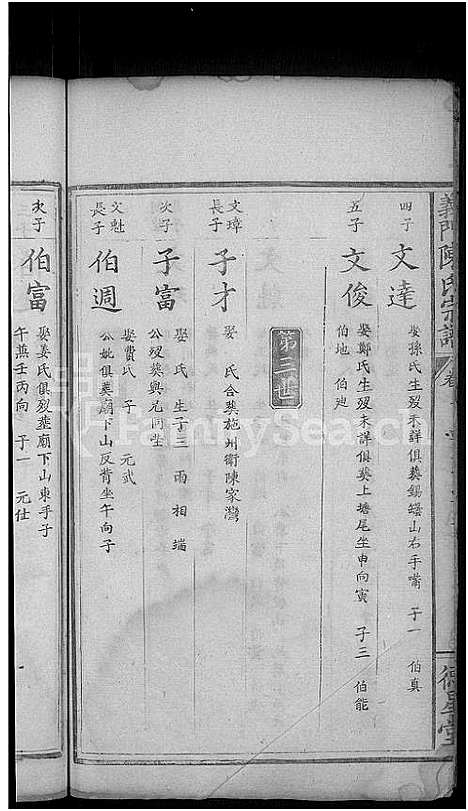 義門陳氏宗譜
德星堂
四子
文達
娶孫氏生歿未詳俱葬錫縀山右手嘴 子一 伯真
五子
文俊
娶鄭氏生歿未詳俱葬上塘尾坐申向寅 子三 伯能
伯地 伯廸
第三世
文璋
長子
子才
娶 氏合葬施州衛陳家灣
次子
子富
娶 氏 生子三 雨 相 端
公歿葬與兄同坐
文魁
長子
伯週
娶費氏 子一 元武
公妣俱葬廟下山反背坐午向子
次子
伯富
娶姜氏俱歿葬廟下山東手子
午兼壬丙向 子一 元仕
FamilySearch